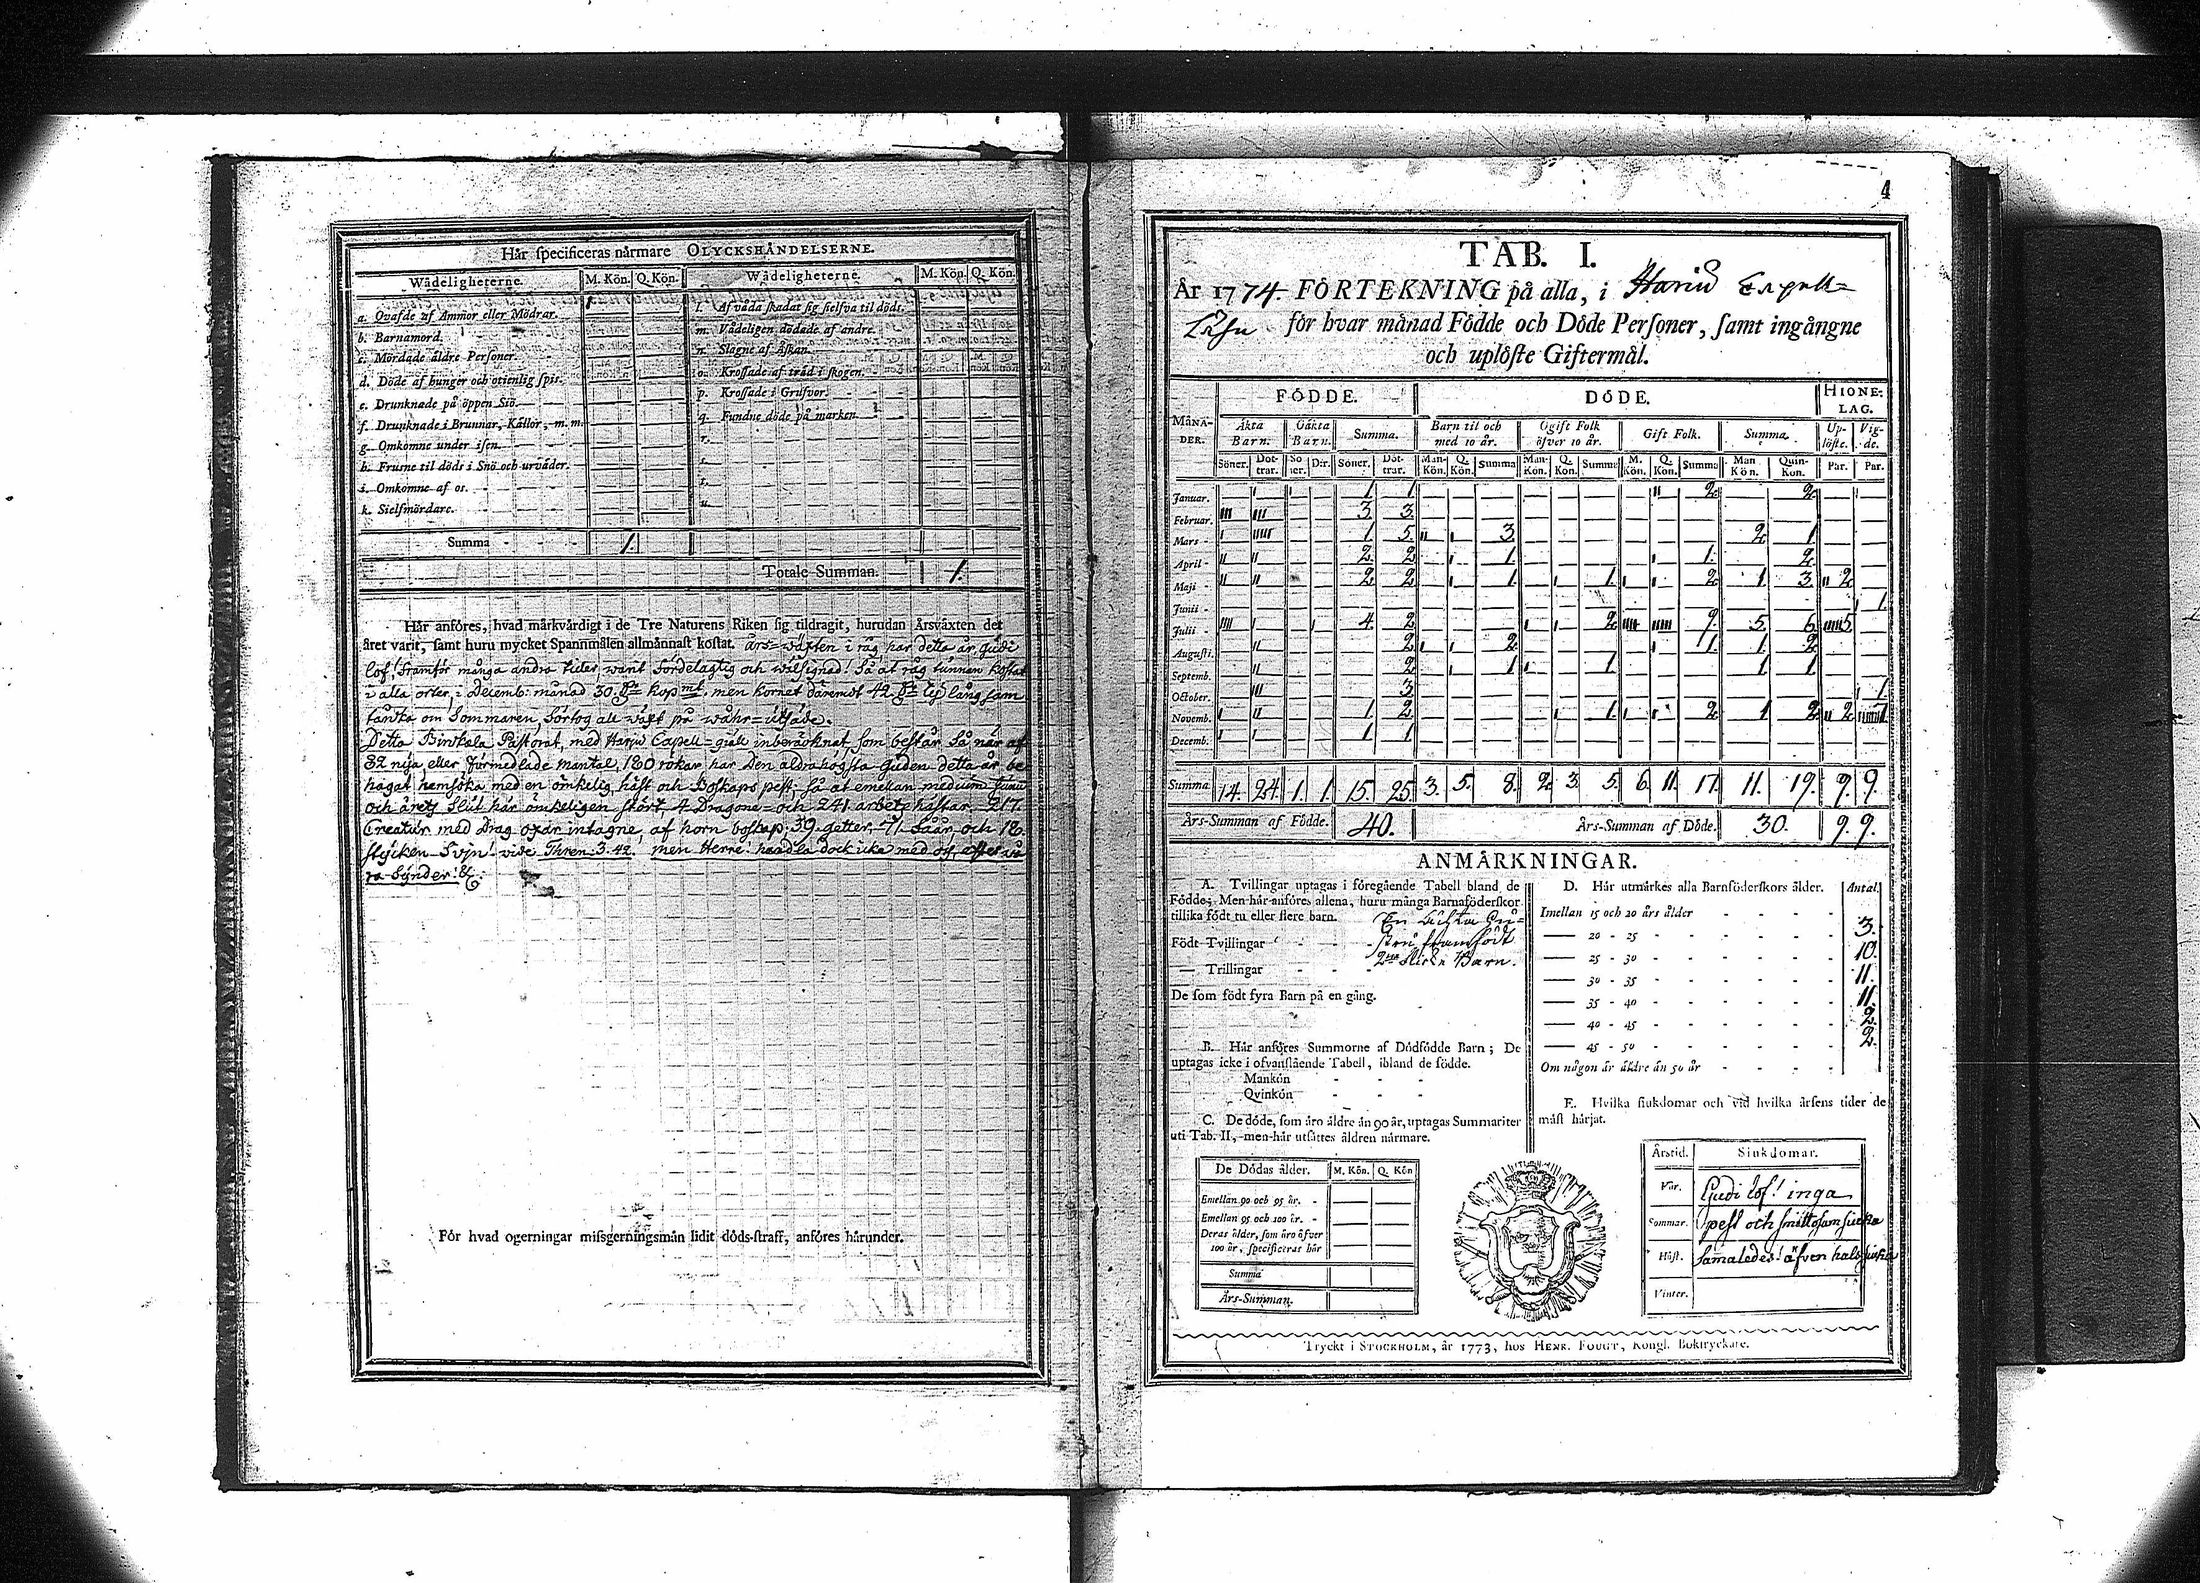 Här ſpecificeras närmare OLYCKSHÄNDELSERNE.
Wådeligheterne. M. Kön. Q. Kön. Wådeligheterne. M. Kön. Q. Kön.
a. Qvafde af Ammor eller Mödrar. 1 l. Af våda ſkadat ſig ſielfva til döds.
b. Barnamord. m. Vådeligen dödade af andre.
c. Mördade äldre Perſoner. n. Slagne af Åſkan.
d. Döde af hunger och otienlig ſpis. o. Kroſſade af träd i ſkogen.
e. Drunknade på öppen Siö. p. Kroſſade i Grufvor.
f. Drunknade i Brunnar, Källor, m. m. q. Fundne döde på marken.
g. Omkomne under iſen. r.
h. Fruſne til döds i Snö och urväder. s.
i. Omkomne af os. t.
k. Sielfmördare. u.
Summa 1.
Totale Summan. 1.
Här anföres, hvad märkvärdigt i de Tre Naturens Riken ſig tildragit, hurudan Årsväxten det
året varit, ſamt huru mycket Spannmålen allmännaſt koſtat. års-wäxten i råg har detta år, gudi
lof, framför många andra tider, warit fördelagtig och wälsignad! så at råg tunnan kostat
i alla orter, i Decemb: månad 30. kop mt. men kornet däremot 42. långsam
täwka om Sommaren, förtog all wäxt på wåhr-utsäde.
Detta Birkala Pastorat, med Harju Capell-giäll inberäcknat som består så när af
82 nya, eller förmedlade mantal, 180 rökar har Den aldrahögsta Guden detta år be-
hagat hemsöka med en ömkelig häst och Boskaps pest; så at emellan medium Junii
och åretz Slut här ömkeligen störtt, 4 Dragone- och 241 arbetz hästar. 217.
Creatur med Drag oxar intagne, af horn boskap; 39. getter, 71. Såår och 120.
stycken Svjn! vide Thren. 3. 42. men Herre! handla dock icke med oss, efter wå-
ra Synder! &c.
För hvad ogerningar miſsgerningsmän lidit döds-ſtraff, anföres härunder.
4
TAB. I.
År 1774. FÖRTEKNING på alla, i Harju Capell-
för hvar månad Födde och Döde Perſoner, ſamt ingångne
och uplöſte Giftermål.
MÅNA-DER. FÖDDE. DÖDE. HIONE-LAG.
Äkta Barn. Oäkta Barn. Summa. Barn til och med 10 år. Ogift Folk öfver 10 år. Gift Folk. Summa. Up-löſte. Vig-de.
Söner. Döt-trar. Sö-ner. D:r. Söner. Döt-trar. Man-Kön. Q. Kön. Summa Man-Kön. Q. Kön. Summa M. Kön. Q. Kön. Summa Man Kön. Quin-Kön. Par. Par.
Januar. 1 1 2. 2.
Februar. 3. 3.
Mars 1 5. 3. 2. 1
April 2. 2. 1. 1. 2.
Maji 2. 2. 1. 1. 2. 1 3. 2.
Junii 1.
Julii 4. 2. 2. 9. 5. 6. 5.
Auguſti. 2. 2. 1. 1. 2.
Septemb. 2. 1 1. 1 1
October. 3. 1
Novemb. 1. 2. 1. 2. 1 2. 2
Decemb. 1 1
Summa 14. 24. 1. 1. 15. 25. 3. 5. 8. 2. 3. 5. 6. 11. 17. 11. 19. 9. 9.
Års-Summan af Födde. 40. Års-Summan af Döde. 30. 9. 9.
ANMÄRKNINGAR.
A. Tvillingar uptagas i föregående Tabell bland de
Födde; Men här anföres allena, huru många Barnaföderſkor
tillika födt tu eller flere barn.
Födt Tvillingar En ächta hu-
stru framfödt
2ne Barn.
— Trillingar
De ſom födt fyra Barn på en gång.
B. Här anföres Summorne af Dödfödde Barn; De
uptagas icke i ofvanſtående Tabell, ibland de födde.
Mankön
Qvinkön
C. De döde, ſom äro äldre än 90 år, uptagas Summariter
uti Tab. II, men här utſättes åldren närmare.
De Dödas ålder. M. Kön. Q. Kön
Emellan 90 och 95 år.
Emellan 95 och 100 år.
Deras ålder, ſom äro öfver
100 år, ſpecificeras här
Summa
Års-Summan.
D. Här utmärkes alla Barnföderſkors ålder. Antal.
Imellan 15 och 20 års ålder 3.
— 20 - 25 10.
— 25 - 30 11.
— 30 - 35 11.
— 35 - 40 2.
— 40 - 45 2.
— 45 - 50
Om någon är äldre än 50 år
E. Hvilka ſiukdomar och vid hvilka årſens tider de
mäſt härjat.
Årstid. Siukdomar.
Vår. Gudi lof! inga
Sommar. pest och smittosam siuka
Höſt. Samaledes! äfven halssiuka
Vinter.
Tryckt i STOCKHOLM, år 1773, hos HENR. FOUGT, Kongl. Boktryckare.